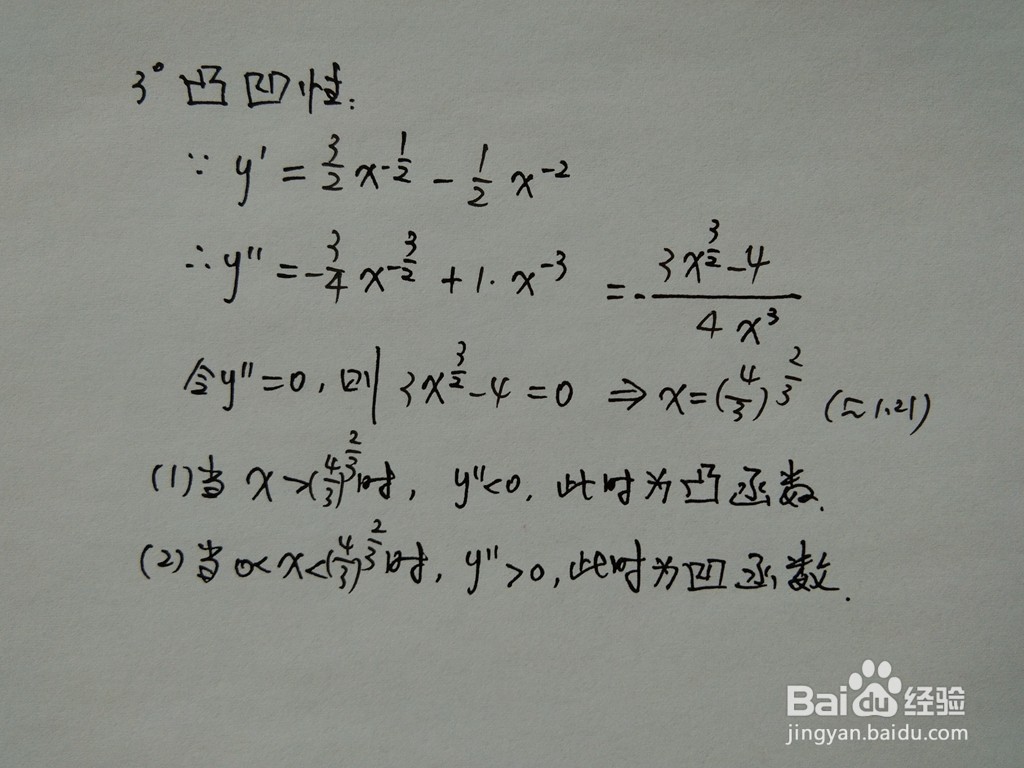 3° 凸凹性:
∵ y' = 3/2 x^(-1/2) - 1/2 x^(-2)
∴ y'' = -3/4 x^(-3/2) + 1·x^(-3) = -(3x^(3/2)-4)/(4x^3)
令y''=0, 则 3x^(3/2)-4=0 ⇒ x=(4/3)^(2/3) (≈1.21)
(1)当 x>(4/3)^(2/3)时, y''<0, 此时为凸函数.
(2)当 0<x<(4/3)^(2/3)时, y''>0, 此时为凹函数.
Baidu经验
jingyan.baidu.com